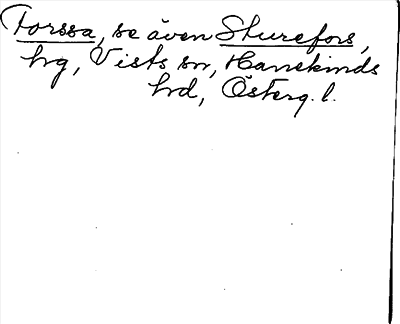 Forssa, se även Sturefors,
hg, Vists sn, Hanekinds
hd, Österg. l.